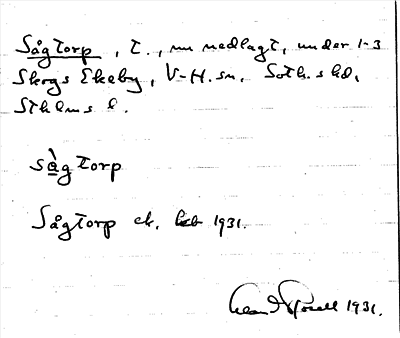 Sågtorp, t., nu nedlagt, under 1-3
Skogs Ekeby, V-H. sn, Soth. shd,
Sthlms l.
sàgtorp
Sågtorp ek. 1931.
1931.